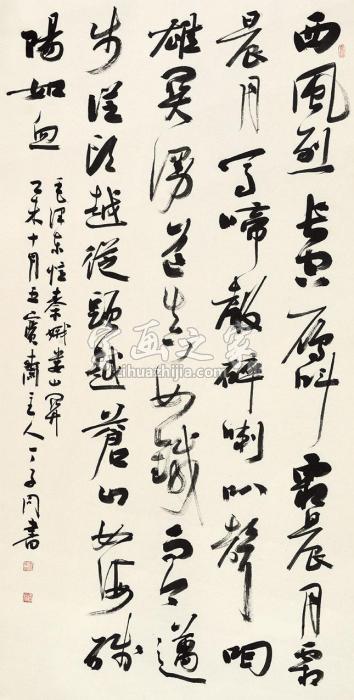 西風烈長空雁叫霜晨月霜
晨月馬啼聲碎喇叭聲咽
雄關漫道真如鐵而今邁
步從頭越從頭越蒼山如海殘
陽如血
毛澤東憶秦娥婁山關
乙未十月主人丁子同書
字画之家
zihuazhijia.com